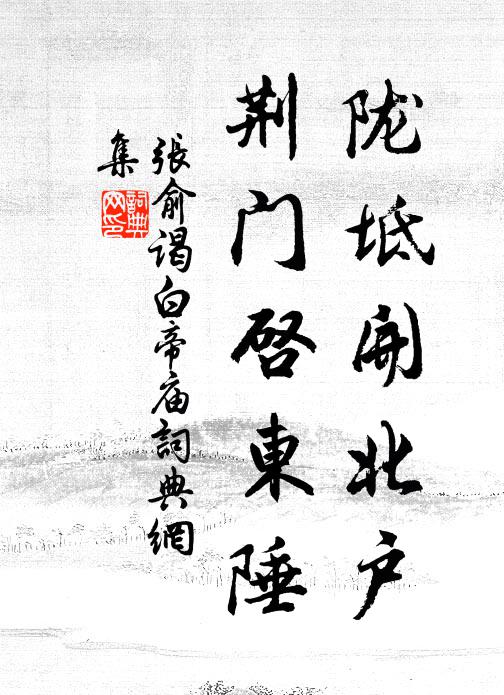 陇坻開北户
荆门啓東陲
張俞谒白帝庙詞典網
集
詞典
网印